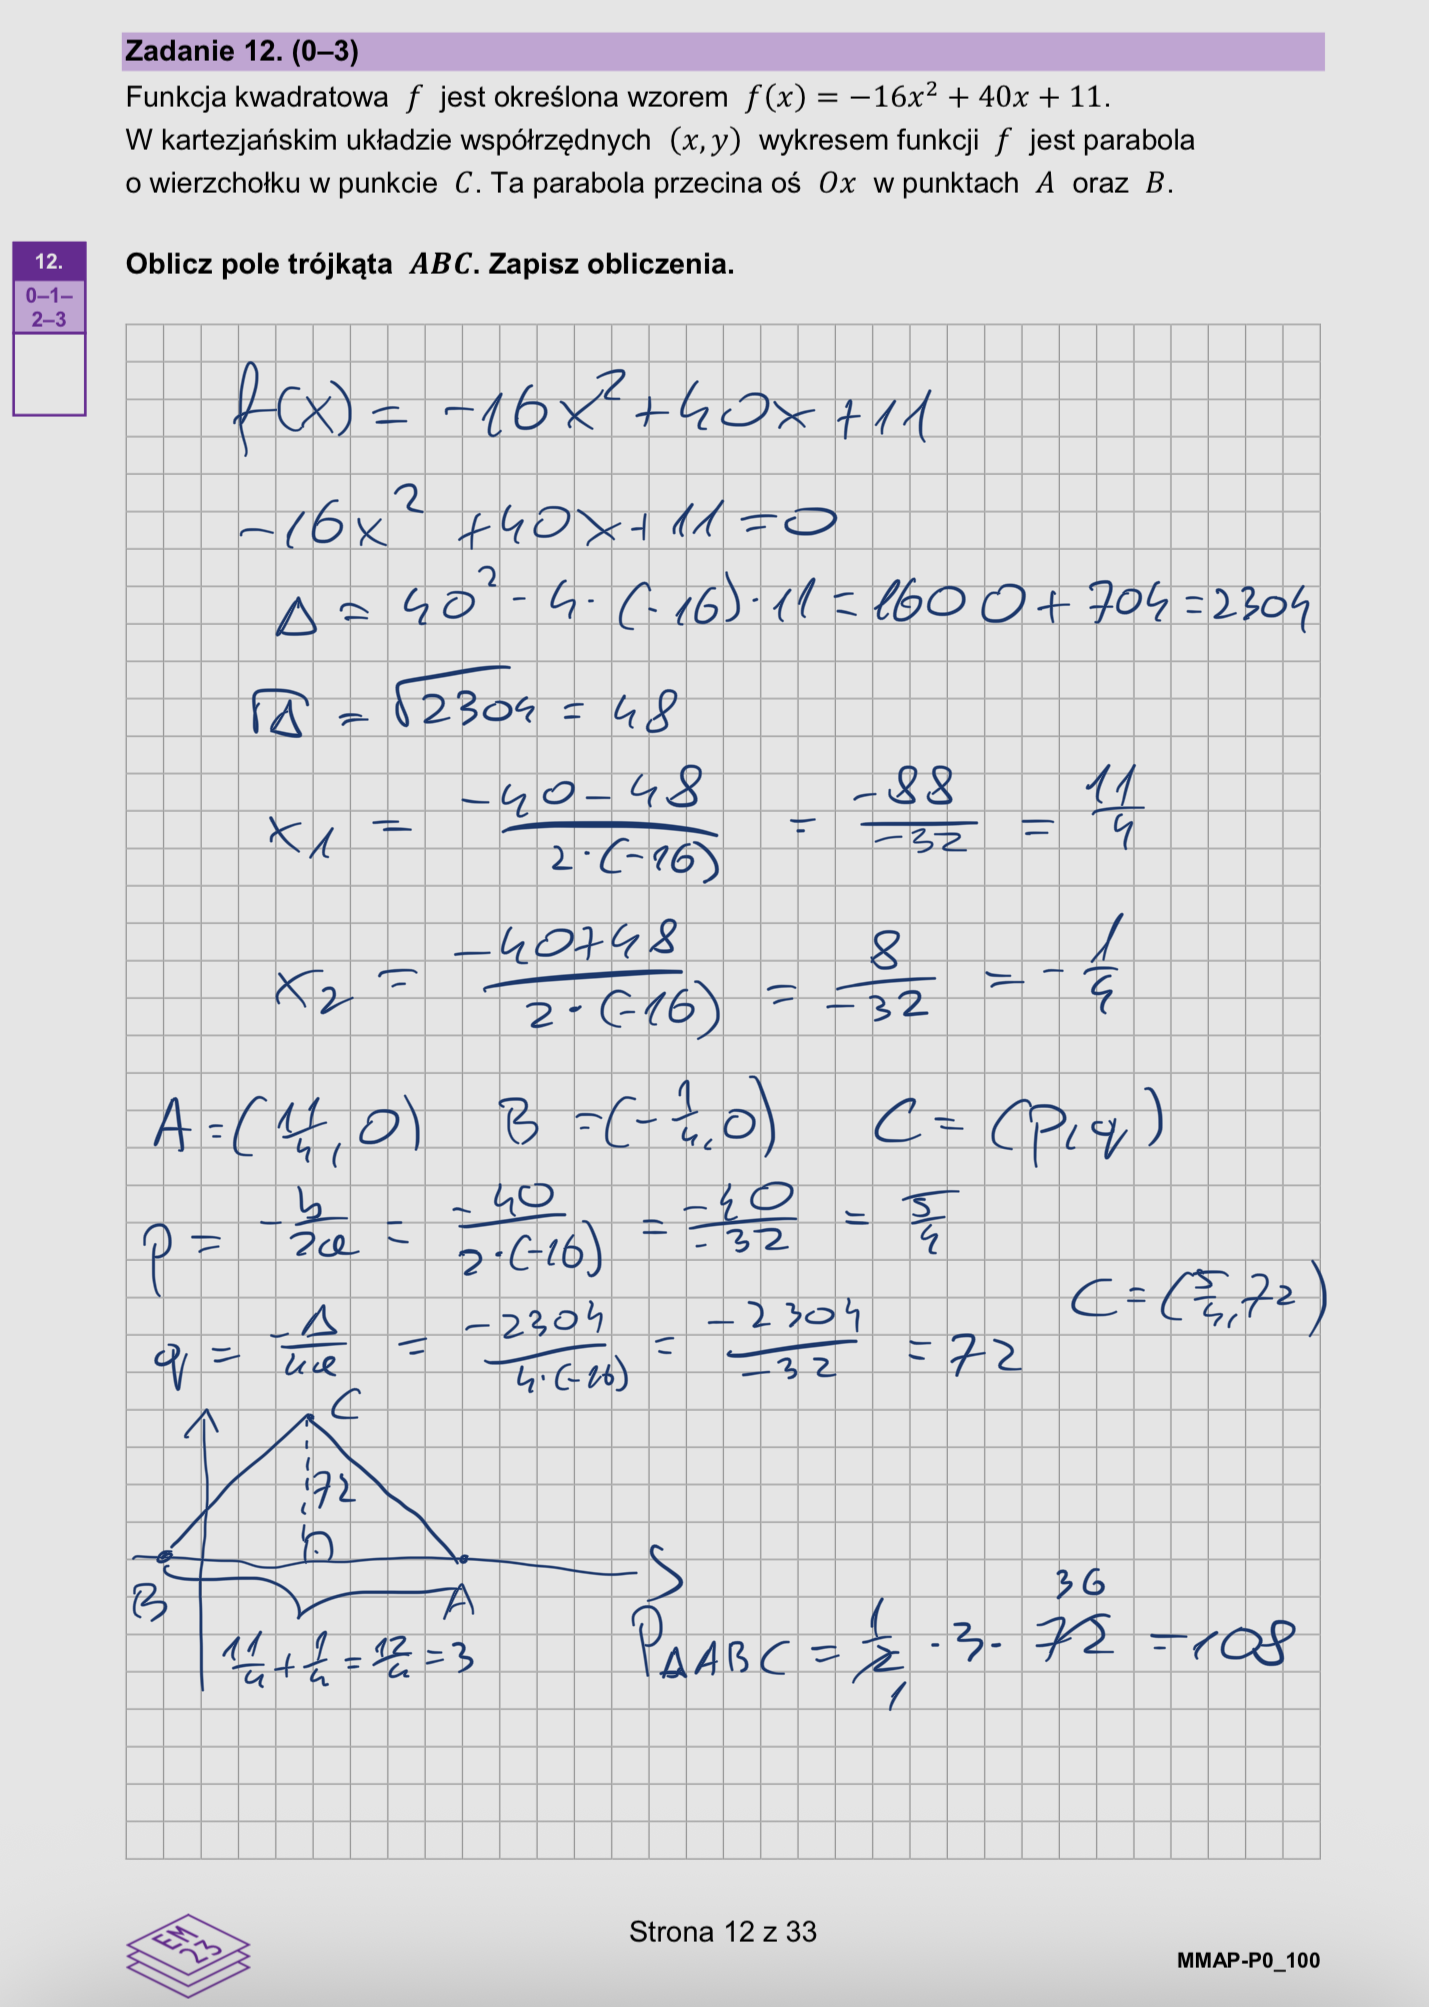 Zadanie 12. (0–3)
Funkcja kwadratowa f jest określona wzorem f(x) = −16x² + 40x + 11.
W kartezjańskim układzie współrzędnych (x, y) wykresem funkcji f jest parabola
o wierzchołku w punkcie C. Ta parabola przecina oś Ox w punktach A oraz B.
12.
0–1–
2–3
Oblicz pole trójkąta ABC. Zapisz obliczenia.
f(x) = -16x² + 40x + 11
-16x² + 40x + 11 = 0
Δ = 40² - 4 · (-16) · 11 = 1600 + 704 = 2304
√Δ = √2304 = 48
x1 = (-40 - 48)/(2 · (-16)) = -88/-32 = 11/4
x2 = (-40 + 48)/(2 · (-16)) = 8/-32 = -1/4
A = (11/4, 0) B = (-1/4, 0) C = (p, q)
p = -b/2a = -40/(2 · (-16)) = -40/-32 = 5/4
C = (5/4, 72)
q = -Δ/4a = -2304/(4 · (-16)) = -2304/-32 = 72
C
72
B
A
11/4 + 1/4 = 12/4 = 3
36
PΔABC = 1/2 · 3 · 72 = 108
1
EM
23
Strona 12 z 33
MMAP-P0_100